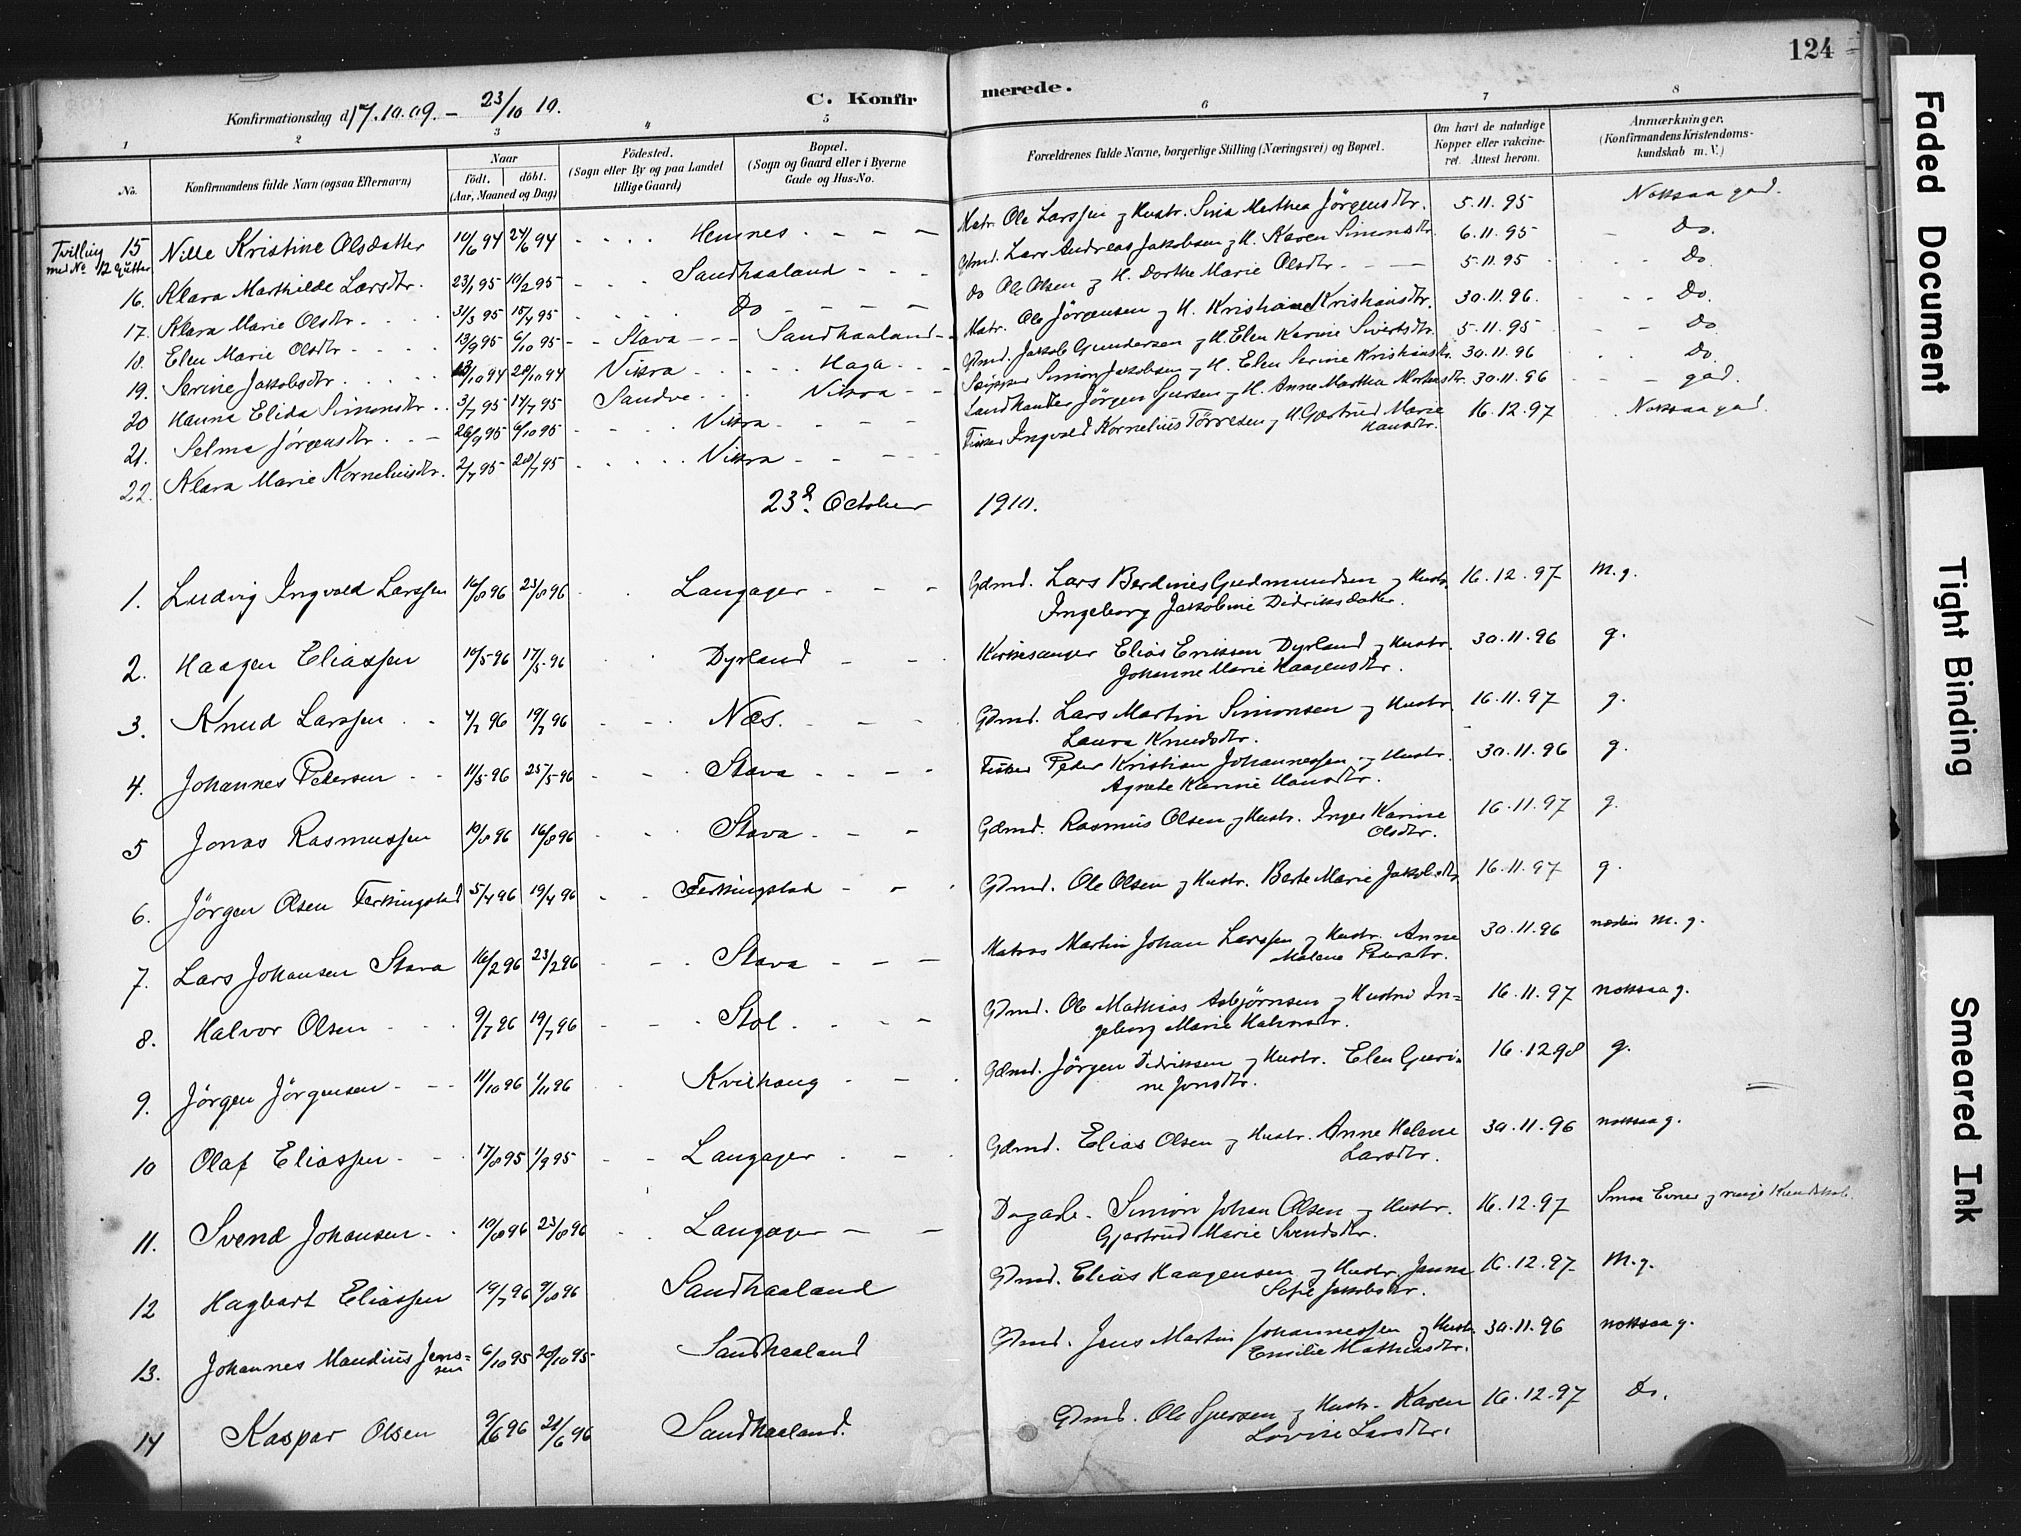 124
Konfirmationsdag d. 17.10.09. – 23/10 10.
C. Konfirmerede.
1 2 3 4 5 6 7 8
No.
Konfirmandens fulde Navn (ogsaa Efternavn)
Naar
födt. döbt.
(Aar, Maaned og Dag)
Födested.
(Sogn eller By og paa Landet
tillige Gaard)
Bopæl.
(Sogn og Gaard eller i Byerne
Gade og Hus-No.
Forældrenes fulde Navne, borgerlige Stilling (Næringsvei) og Bopæl.
Om havt de naturlige
Kopper eller vakcine-
ret. Attest herom.
Anmærkninger.
(Konfirmandens Kristendoms-
kundskab m. V.)
Tvilling med No 12 Gutter
15 Nille Kristine Olsdatter 10/6 94 24/6 94 Hemnes Matr. Ole Larssen og Hustr. Sina Marthea Jörgensdtr. 5.11.95 Noksaa god.
16. Klara Marthilde Larsdtr. 23/1 95 10/2 95 Sandhaaland Gdmd. Lars Andreas Jakobsen og H. Karen Simonsdtr. 6.11.95 Do.
17. Klara Marie Olsdtr. 31/3 95 15/4 95 Do Do Ole Olsen og H. Dorthe Marie Olsdtr. 5.11.95 Do
18. Elen Marie Olsdtr 13/9 95 6/10 95 Stava Sandhaaland Matr. Ole Jörgensen og H. Kristiane Kristiansdtr. 30.11.96. Do.
19. Serine Jakobsdtr. /10 94 28/10 94 Vikra Haga Gdmd. Jakob Gundersen og H. Elen Karine Sivertsdtr. 5.11.95 Do
20 Hanna Elida Simonsdtr. 3/7 95 14/7 95 Sandve Vikra Skipper Simon Jakobsen og H. Elen Serine Kristiansdtr. 30.11.96 Do
21. Selma Jörgensdtr. 26/9 95 6/10 95 Vikra Landhandler Jörgen Sjursen og H. Anne Marthea Mortensdtr. 30.11.96 god.
22. Klara Marie Korneliusdtr. 2/7 95 28/7 95 Vikra Fisker Ingvald Kornelius Törresen og H. Gjertrud Marie Hansdtr. 16.12.97 Noksaa god.
23d. October 1910.
1. Ludvig Ingvald Larssen 16/8 96 23/8 96 Langager Gdmd. Lars Berdines Gudmundsen og Hustr. 16.12.97 M.g.
Ingeborg Jakobine Didriksdatter.
2. Haagen Eliassen 10/5 96 17/5 96 Dyrland Kirkesanger Elias Eriksen Dyrland og Hustr. 30.11.96 g.
Johanne Marie Haagensdtr.
3. Knud Larssen 4/7 96 19/7 96 Næs. Gdmd. Lars Martin Simonsen og Hustr. 16.11.97 g.
Laura Knudsdtr.
4. Johannes Petersen 11/5 96 25/5 96 Stava Fisker Peder Kristian Johannessen og Hustr. 30.11.96 g.
Agnete Karine Hansdtr.
5 Jonas Rasmussen 10/8 96 16/8 96 Stava Gdmd. Rasmus Olsen og Hustr. Inger Karine 16.11.97 g.
Olsdtr.
6. Jörgen Olsen Ferkingstad 5/4 96 19/4 96 Ferkingstad Gdmd. Ole Olsen og Hustr. Berte Marie Jakobsdtr 16.11.97 g.
7. Lars Johansen Stava 16/2 96 23/2 96 Stava Matros Martin Johan Larssen og Hustr. Anne 30.11.96 næsten M.g.
Malene
8. Halvor Olsen 9/7 96 19/7 96 Stol. Gdmd. Ole Mathias Asbjörnsen og Hustru In= 16.11.97 noksaa g.
geborg Marie Halvorsdtr.
9. Jörgen Jörgensen 11/10 96 1/11 96 Kvilhaug Gdmd. Jörgen Didriksen og Hustr. Elen Guri- 16.12 98 g.
ne Jonsdtr.
10 Olaf Eliassen 17/8 95 1/9 95 Langager Gdmd. Elias Olsen og Hustr. Anne Helene 30.11.96 noksaa g.
Larsdtr.
11. Svend Johansen 10/8 96 23/8 96 Langager Dagarb. Simon Johan Olsen og Hustr. 16.12.97 Smaa Evner og ringe Kundskab.
Gjertrud Marie Svendsdtr.
12 Hagbart Eliassen 19/7 96 9/8 96 Sandhaaland Gdmd. Elias Haagensen og Hustr. Janna 16.12.97 M.g.
Sofie Jakobsdtr.
13. Johannes Mandius Jens= 6/10 95 20/10 95 Sandhaaland Gdmd. Jens Martin Johannessen og Hustr. 30.11.96 noksaa g.
sen Emilie Mathiasdtr.
14 Kaspar Olsen 9/6 96 21/6 96 Sandhaaland. Gdmd. Ole Sjursen og Hustr. Karen 16.12.97 Do.
Lovise Larsdtr.
Faded Document
Tight Binding
Smeared Ink